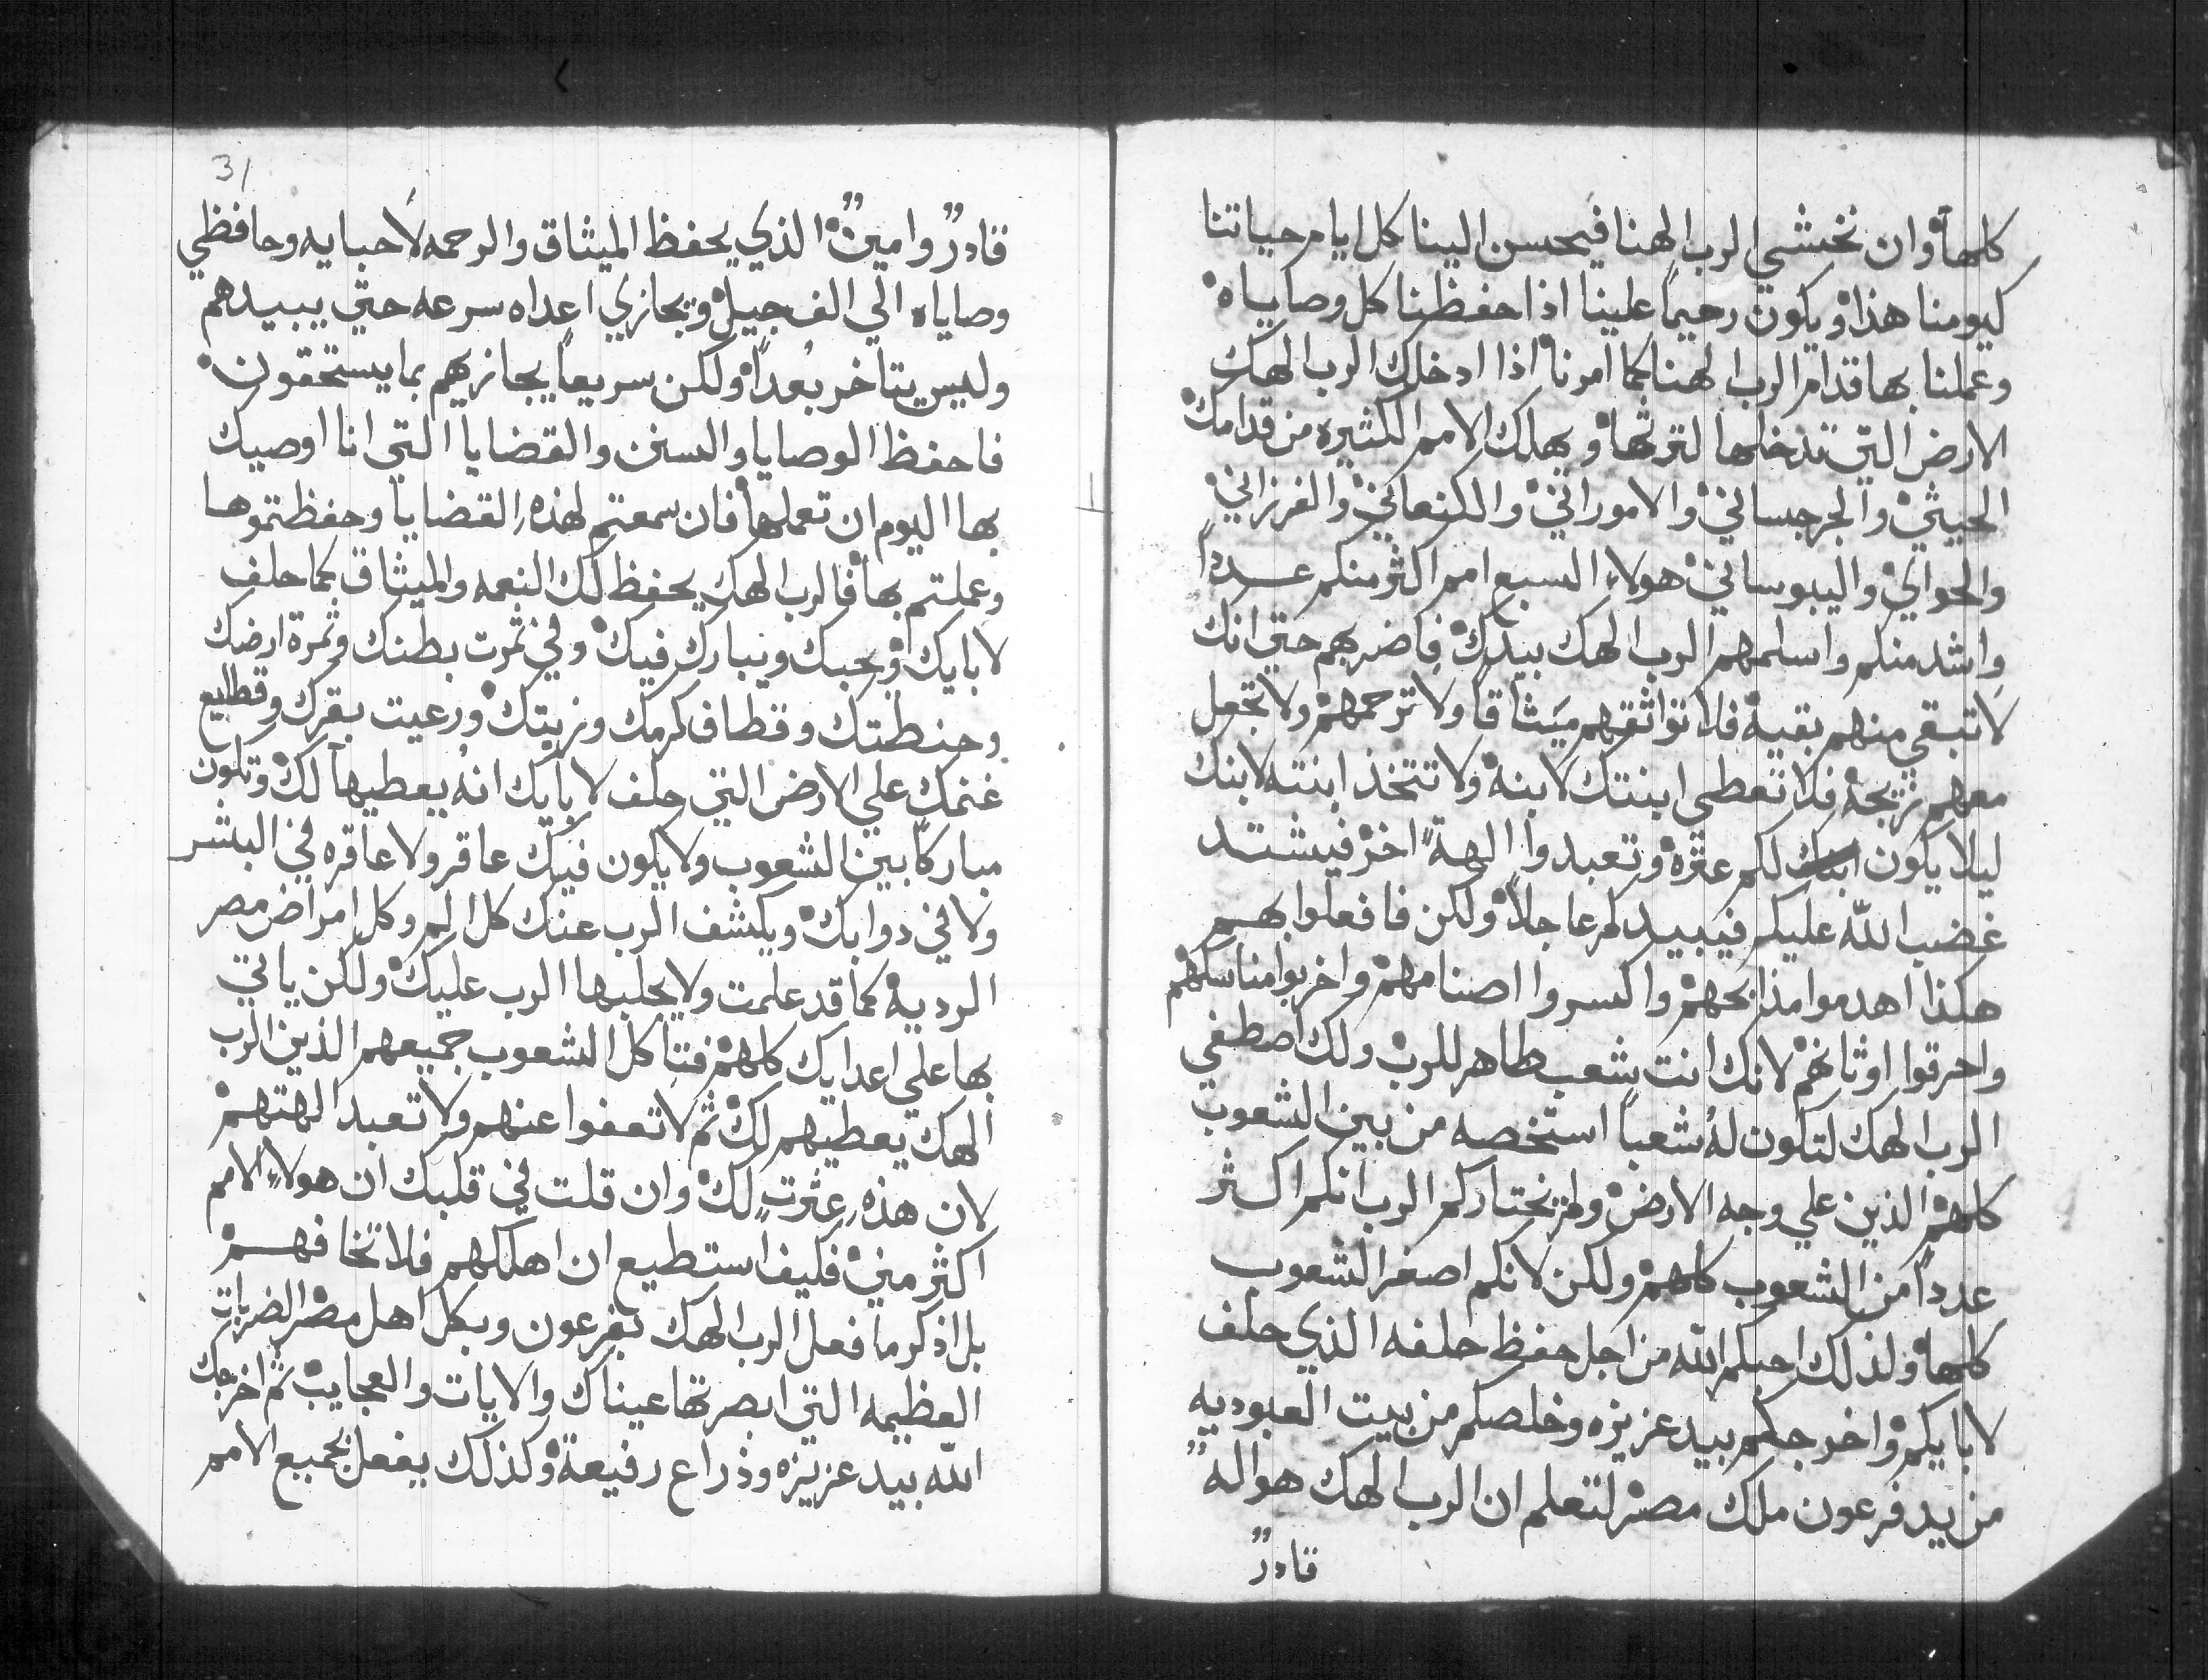 كلها وان نخشي الرب الهنا فيحسن الينا كل ايام حياتنا
كيومنا هذا ويكون رحيماً علينا اذا حفظنا كل وصاياه
وعملنا بها قدام الرب الهنا كما امرنا اذا ادخلك الرب الهك
الارض التي تدخلها لترثها ويهلك الامم الكثيره من قدامك
الحيثي والجرجساني والاموراني والكنعاني والفرزاني
والحواي واليبوساني هولاء السبع امم اكثر منكم عدداً
واشد منكم واسلمهم الرب الهك بيدك فاضربهم حتي انك
لا تبقي منهم بقيه فلا تواثقهم ميثاقا ولا ترحمهم ولا تجعل
معهم تزيجه فلا تعطي ابنتك لابنه ولا تتخذ ابنته لابنك
ليلا يكون لكم عثره وتعبدوا الهةً اخر فيشتد
غضب الله عليكم فيبيدكم عاجلاً ولكن فافعلوا بهم
هكذا اهدموا مذابحهم واكسروا اصنامهم واخربوا مناسكهم
واحرقوا اوثانهم لانك انت شعب طاهر للرب ولك اصطفي
الرب الهك لتكون لهُ شعباً استخصه من بين الشعوب
كلهم الذين علي وجه الارض ولم يختاركم الرب انكم اكثر
عدداً من الشعوب كلهم ولكن لانكم اصغر الشعوب
كلها ولذلك احبكم الله من اجل حفظ حلفه الذي حلف
لابايكم واخرجكم بيد عزيزه وخلصكم من بيت العبوديه
من يد فرعون ملك مصر لتعلم ان الرب الهك هو الهٌ
قادرٌ
31
قادرٌ وامينٌ الذي يحفظ الميثاق والرحمه لاحبايه وحافظي
وصاياه الي الف جيل ويجازي اعداه سرعه حتي يبيدهم
وليس يتاخر بُعداً ولكن سريعاً يجازيهم بما يستحقون
فاحفظ الوصايا والسنن والقضايا التي انا اوصيك
بها اليوم ان تعملها فان سمعتم لهذهِ القضايا وحفظتموها
وعملتم بها فالرب الهك يحفظ لك النعمه والميثاق كما حلف
لابايك ويحبك ويبارك فيك وفي ثمرت بطنك وثمرة ارضك
وحنطتك وقطاف كرمك وزيتك ورعيت بقرك وقطايع
غنمك علي الارض التي حلف لابايك انهُ يعطيها لك وتكون
مباركاً بين الشعوب ولا يكون فيك عاقر ولا عاقره في البشر
ولا في دوابك ويكشف الرب عنك كل الم وكل امراض مصر
الرديه كما قد علمت ولا يجلبها الرب عليك ولكن ياتي
بها علي اعدايك كلهم فتاكل الشعوب جميعهم الذين الرب
الهك يعطيهم لك ثم لا تعفوا عنهم ولا تعبد الهتهم
لان هذهِ عثرتٍ لك وان قلت في قلبك ان هولاءِ الامم
اكثر مني فكيف استطيع ان اهلكهم فلا تخافهم
بل اذكر ما فعل الرب الهك بفرعون وبكل اهل مصر الضربات
العظيمه التي ابصرتها عيناك والايات والعجايب ثم اخرجك
الله بيد عزيزه وذراع رفيعة وكذلك يفعل بجميع الامم